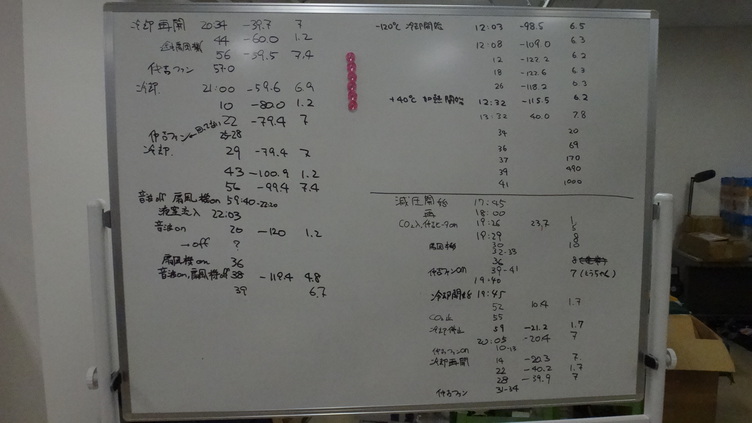 冷却再開 20:34 -39.7 7
44 -60.0 1.2
56 -59.5 7.4
代吉ファン 57.0
冷却 21:00 -59.6 6.9
10 -80.0 1.2
22 -79.4 7
冷却 29 -79.4 7
43 -100.9 1.2
56 -99.4 7.4
扇風機on 59:40
液室注入 22:03
音波on 20 -120 1.2
→off ?
扇風機on 36
音波on, 扇風機off 38 -119.4 4.8
39 6.7
-120℃ 冷却開始 12:03 -98.5 6.5
12:08 -109.0 6.3
12 -122.2 6.2
18 -122.6 6.3
26 -118.2 6.3
+40℃ 加熱開始 12:32 -115.5 6.2
13:32 40.0 7.8
34 20
36 69
37 170
39 490
41 1000
減圧開始 17:45
18:00
19:26 23.7 1
19:29 8
扇風機 30 10
32-33
36
代吉ファンon 39-41 7
19:40
冷却開始 19:45
52 10.4 1.7
CO₂止 55
冷却停止 59 -21.2 1.7
20:05 -20.4 7
代吉ファンon 10-13
冷却再開 14 -20.3 7
22 -40.2 1.7
28 -39.9 7
代吉ファン 31-34